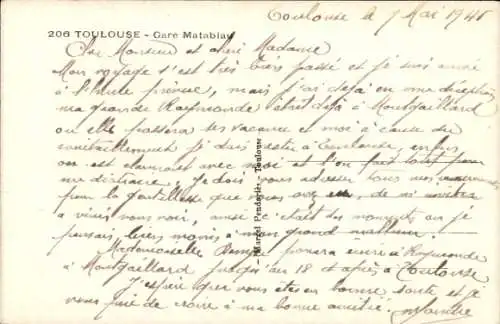 Toulouse le 7 Mai 1945
206 TOULOUSE - Gare Matabiau
Cher Monsieur et chère Madame
Mon voyage s'est très bien passé et je suis arrivé
à l'heure prévue, mais j'ai déjà eu une déception
ma grande Raymonde était déjà à Montgaillard
ou elle passera ses vacances et moi à cause du
ravitaillement je dois rester à Toulouse, enfin
on est charmant avec moi et l'on fait tout pour
me distraire. Je dois vous adresser tous mes
pour la gentillesse que vous avez eu, de m'inviter
à venir vous voir, aussi c'était des moments ou je
pensais bien moins à mon grand malheur.
Mademoiselle pourra écrire à Raymonde
à Montgaillard jusqu'au 18 et après à Toulouse
J'espère que vous êtes en bonne santé et je
vous prie de croire à ma bonne amitié.
Marcel Pendariès, Toulouse